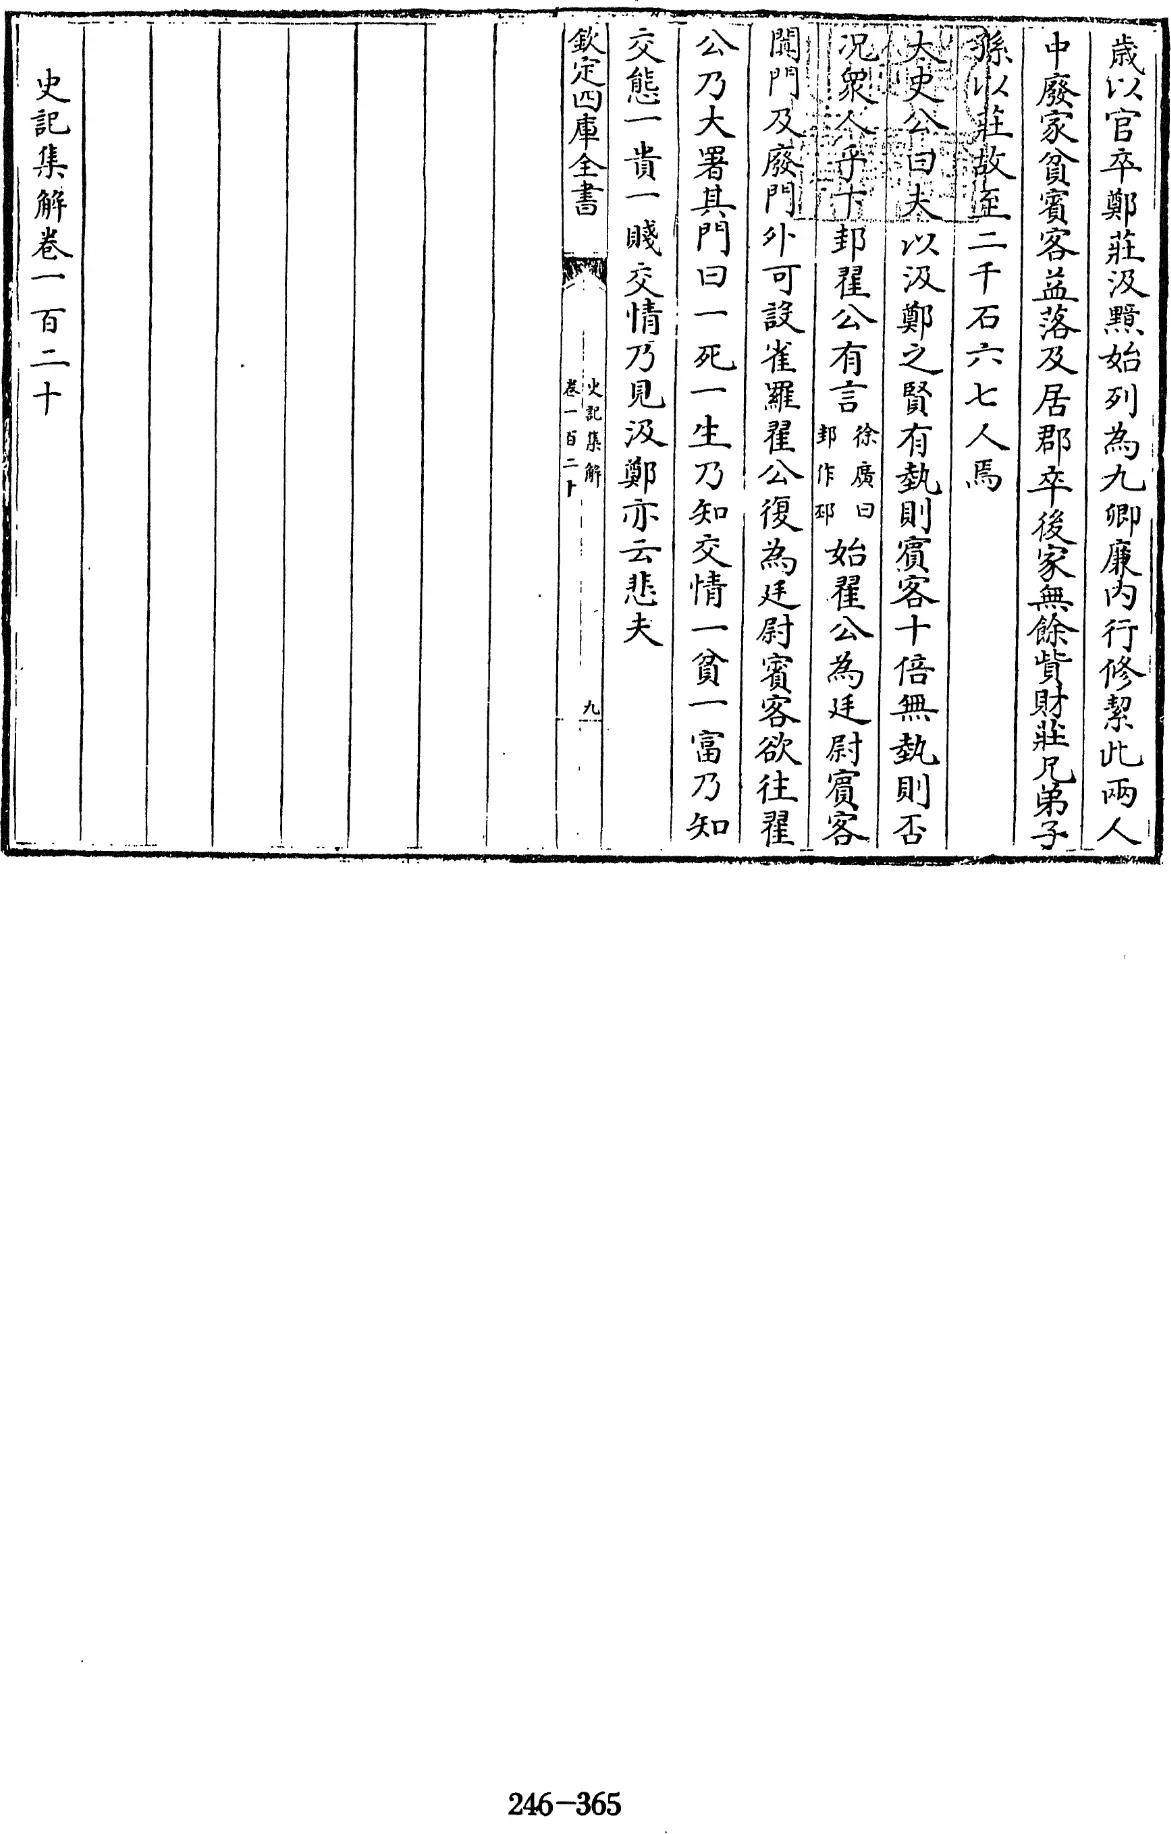 歳以官卒鄭莊汲黯始列為九卿廉内行修絜此兩人
中廢家貧賓客益落及居郡卒後家無餘貲財莊兄弟子
孫以莊故至二千石六七人焉
太史公曰夫以汲鄭之賢有埶則賓客十倍無埶則否
况衆人乎下邽翟公有言徐廣曰邽作邳始翟公為廷尉賓客
闐門及廢門外可設雀羅翟公復為廷尉賓客欲往翟
公乃大署其門曰一死一生乃知交情一貧一富乃知
交態一貴一賤交情乃見汲鄭亦云悲夫
欽定四庫全書
史記集解
卷一百二十
九
史記集解卷一百二十
246-365